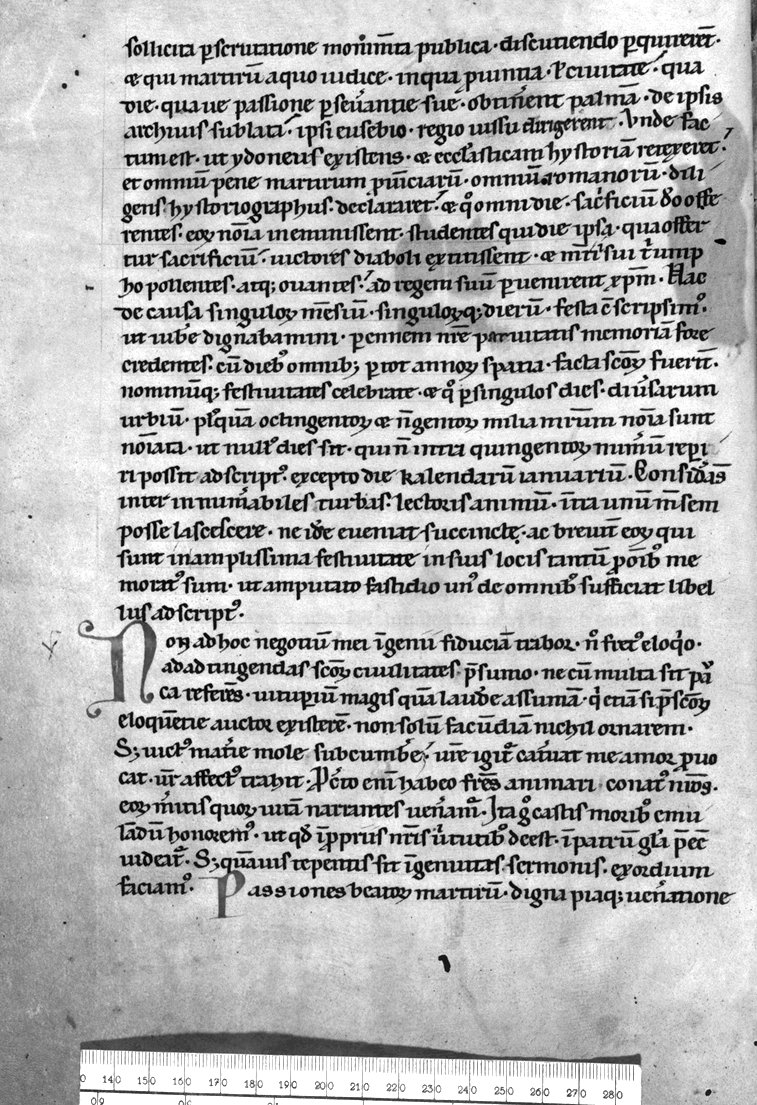 sollicita ꝑscrutatione monim̄ta publica· discutiendo ꝑquireret̄·
⁊ qui martirū a quo iudice· in qua ꝓuintia· ł ciuitate· qua
die· qua ue passione ꝑseu̓antie sue· obtin̓ent palmā· de ipsis
archiuis sublata· ipsi eusebio· regio iussu dirigerent· Vnde fac
tum est· ut ydoneus existens· ⁊ eccl̓asticam hystoriā retexeret·
et omniū pene martirum ꝓuīciarū· omniū romanorū· dili
gens hystoriographus· declararet· ⁊ qͦ omni die· sac̓ficiū do offe
rentes· eoꝝ noīa meminissent· studentes qui die ipsa· qua offer
tur sacrificiū· uictores diaboli extitissent· ⁊ mr̄i sui t̓ump
ho pollentes· atq; ouantes· ad regem suū ꝑuenirent xp̄m· Hac
de causa singuloꝝ m̄esiū· singuloꝝq; dierū· festa c̄scripsim᷒·
ut iub̄e dignabamini· ꝑennem nr̄e paruitatis memoriā fore
credentes· cū dieb᷒ omnib;· ꝑ tot annoꝝ spatia· facta sc̄oꝝ fuerīt·
nominūq; festiuitates celebrate· ⁊ qͦ ꝑ singulos dies· diu̓sarum
urbiū· pl᷒quā octingentoꝝ ⁊ n̄gentoꝝ milia mr̄um noīa sunt
noīata· ut null᷒ dies sit· qui n̄ intra quingentoꝝ num̓ū rep̲i
ri possit adscript᷒· excepto die kalendarū ianuariū· Considans
inter innum̓abiles turbas· lectoris animū· īra unū m̄sem
posse lascescere· ne id̄e eueniat succincte· ac breuit̄ eoꝝ qui
sunt in amplissima festiuitate in suis locis tantū ꝑoīb᷒ me
morat᷒ sum· ut amputato fastidio un᷒ de omnib᷒ sufficiat libel
lus adscript᷒·
Non ad hoc negotiū mei īgenii fiduciā trabor· n̄ fret᷒ eloq̓o·
ad adtingendas sc̄oꝝ ciuilitates p̄sumo· ne cū multa sit pa̓
ca refer̄es· uituꝑiū magis quā laude assumā· q̓ etiā si p̄scoꝝ
eloquētie auctor existerē· non solū facūdiā nichil ornarem·
S; uict᷒ mat̓ie mole subcumb̄e· ur̄e igit̄ cat̓uat me amor ꝓuo
cat· ur̄ affect᷒ trahit· Pc̄to eni̓ habeo fr̄es animari conat᷒ nr̄os·
eoꝝ m̓itis quoꝝ uitā narrantes uen̓am᷒· Itaq̓ castis morib᷒ emu
landū honorem᷒· ut qd̄ īpprus nr̄is u̓tutib᷒ deest· ī patrū gl̓a p̄eē
uideat̄· S; quāuis tepentis sit īgenuitas sermonis· exordium
faciam᷒· Passiones beatoꝝ martirū· digna piaq; uen̓atione